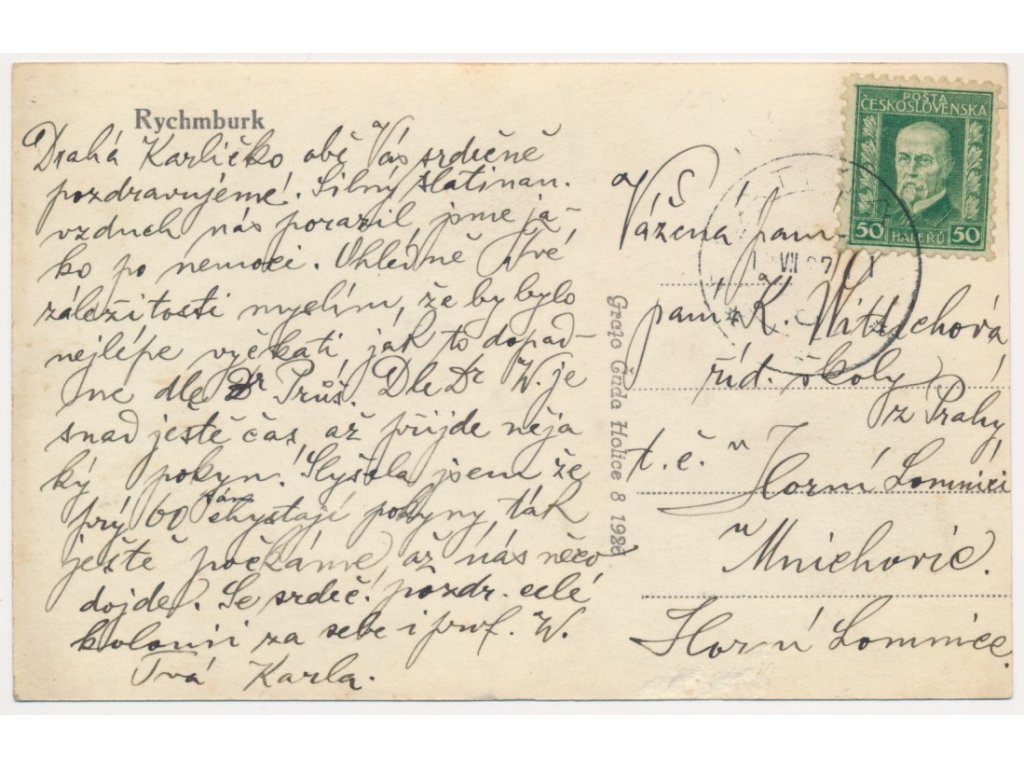 Rychmburk
Drahá Karličko obě Vás srdečně
pozdravujeme. Silný slatinan.
vzduch nás porazil, jsme ja-
ko po nemoci. Ohledně Tvé
záležitosti myslím, že by bylo
nejlépe vyčkati, jak to dopad-
ne dle Dr Průš. Dle Dr W. je
snad ještě čas, až přijde něja
ký pokyn. Slyšela jsem že
prý 60 chystají pokyny, tak
ještě počkáme, až nás něco
dojde. Se srdeč. pozdr. celé
kolonii za sebe i prof. W.
Tvá Karla.
POŠTA
ČESKOSLOVENSKA
50 HALÉŘŮ 50
VII
Vážená paní
paní K. Wittichová
říd. školy
z Prahy
t. č. v
Horní Lomnici
u
Mnichovic.
Horní Lomnice.
Grafo Čuda Holice 8 1926